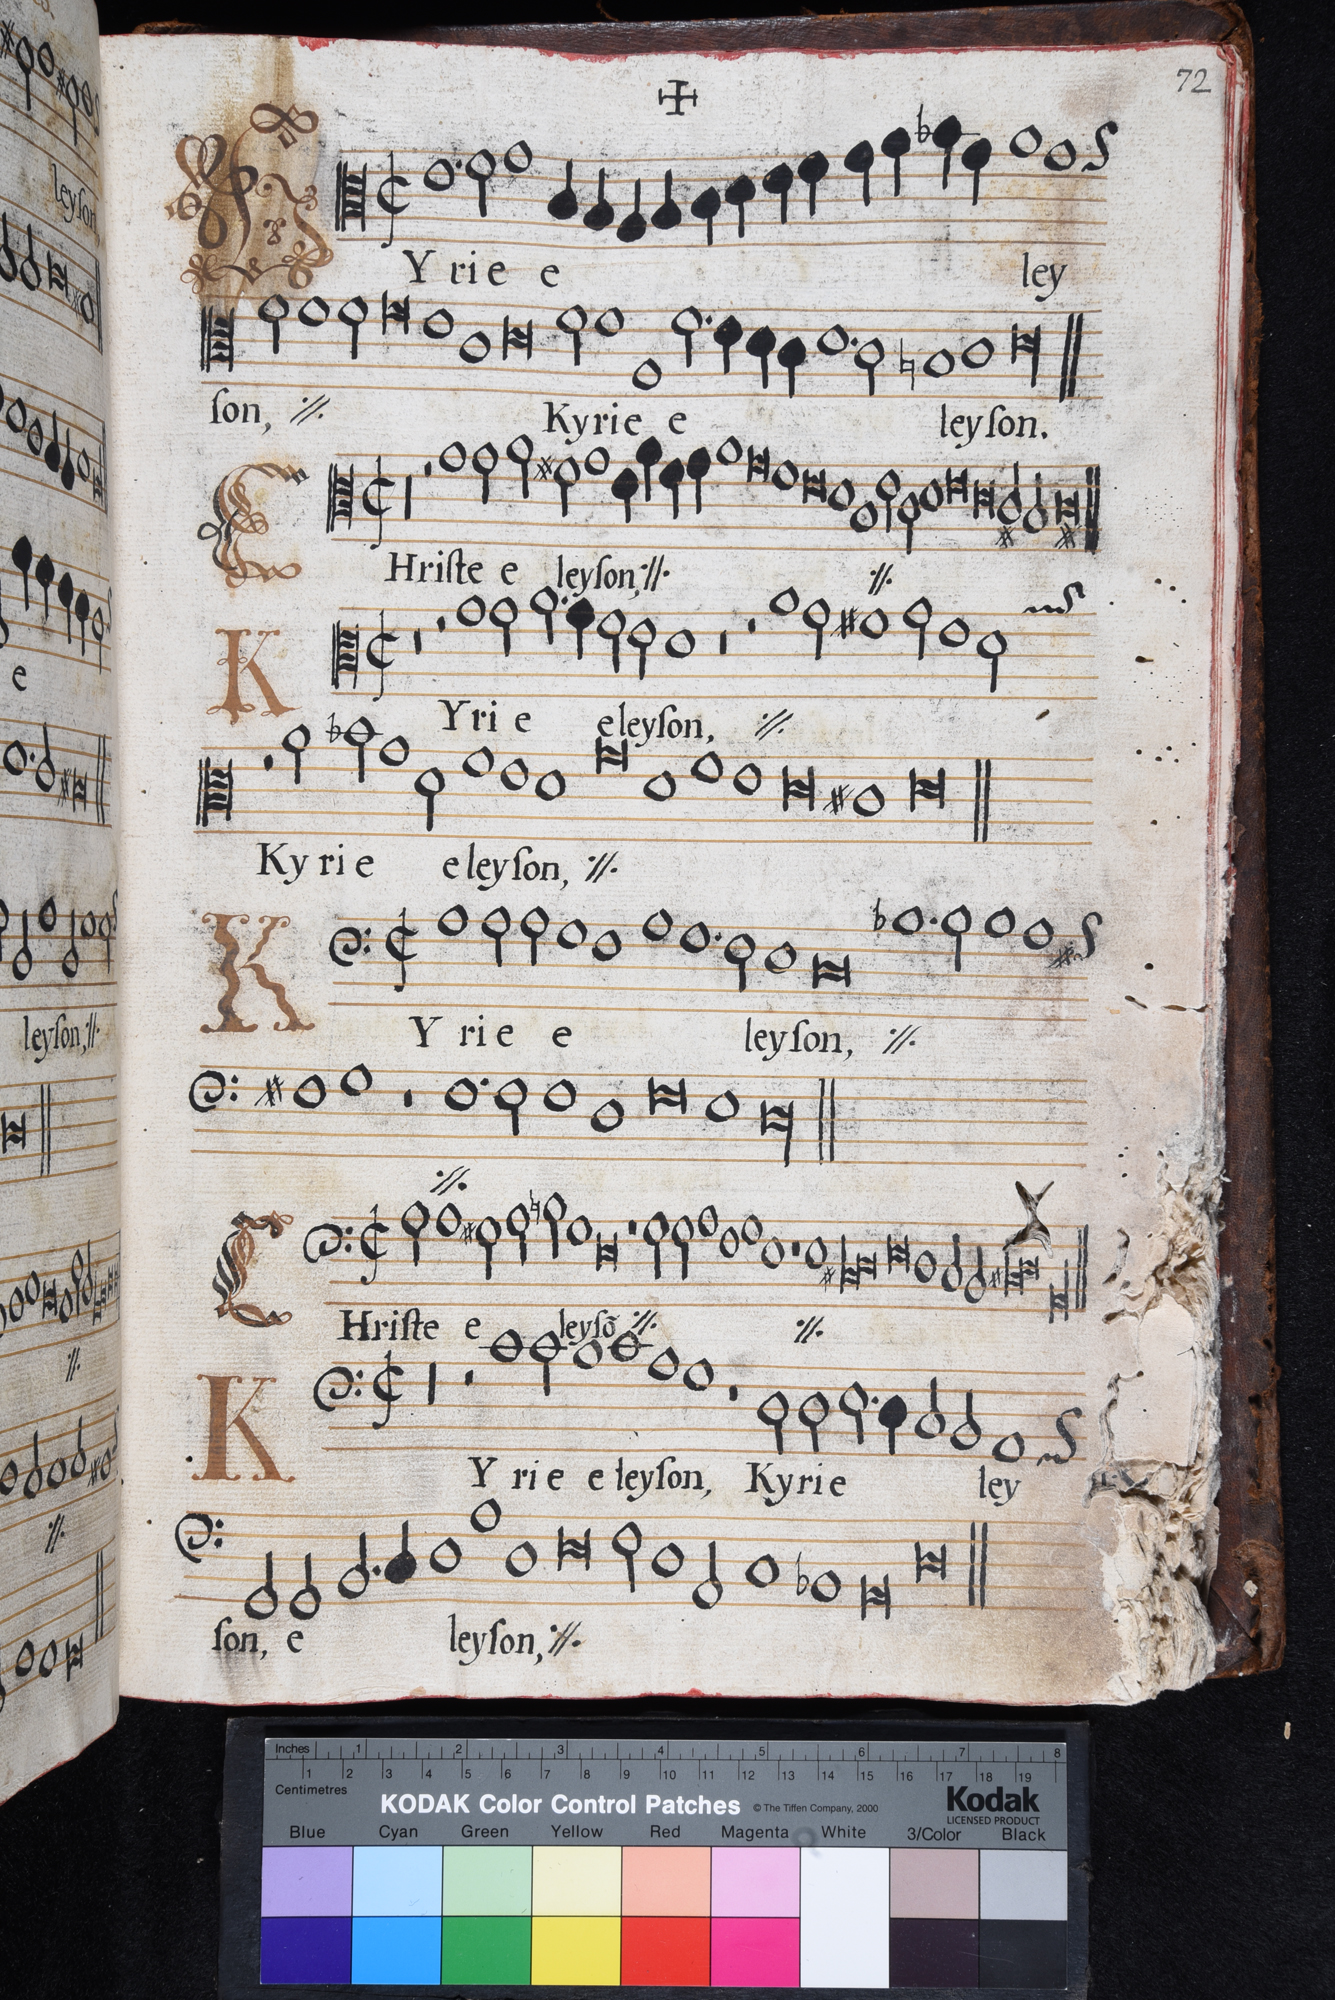 72
KYrie e ley
ſon, :// Kyrie e leyſon.
CHriſte e leyſon, :// ://
KYrie eleyſon, ://
Kyrie eleyſon, ://
KYrie e leyſon, ://
://
CHriſte e leyſõ :// ://
KYrie eleyſon, Kyrie ley
ſon, e leyſon, ://
leyſon
e
leyſon, ://
://
://
Inches 1 2 3 4 5 6 7 8
Centimetres 1 2 3 4 5 6 7 8 9 10 11 12 13 14 15 16 17 18 19
KODAK Color Control Patches © The Tiffen Company, 2000 Kodak
LICENSED PRODUCT
Blue Cyan Green Yellow Red Magenta White 3/Color Black